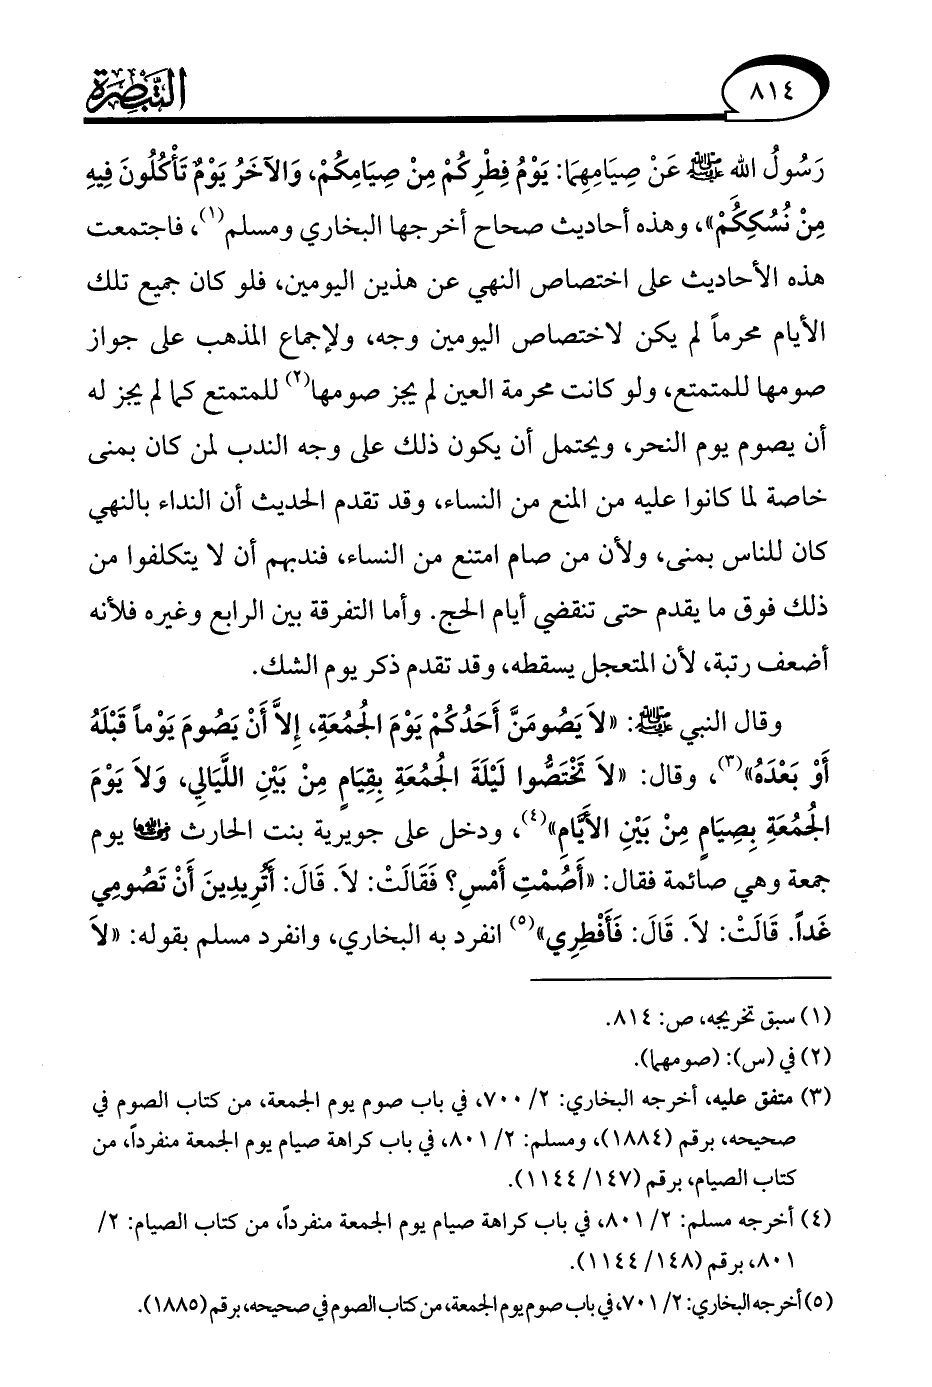 ٨١٤
التبصرة
رَسُولُ الله ﷺ عَنْ صِيَامِهِمَا: يَوْمُ فِطْرِكُمْ مِنْ صِيَامِكُمْ، وَالآخَرُ يَوْمٌ تَأْكُلُونَ فِيهِ
مِنْ نُسُكِكُمْ»، وهذه أحاديث صحاح أخرجها البخاري ومسلم(١)، فاجتمعت
هذه الأحاديث على اختصاص النهي عن هذين اليومين، فلو كان جميع تلك
الأيام محرماً لم يكن لاختصاص اليومين وجه، ولإجماع المذهب على جواز
صومها للمتمتع، ولو كانت محرمة العين لم يجز صومها(٢) للمتمتع كما لم يجز له
أن يصوم يوم النحر، ويحتمل أن يكون ذلك على وجه الندب لمن كان بمنى
خاصة لما كانوا عليه من المنع من النساء، وقد تقدم الحديث أن النداء بالنهي
كان للناس بمنى، ولأن من صام امتنع من النساء، فندبهم أن لا يتكلفوا من
ذلك فوق ما يقدم حتى تنقضي أيام الحج. وأما التفرقة بين الرابع وغيره فلأنه
أضعف رتبة، لأن المتعجل يسقطه، وقد تقدم ذكر يوم الشك.
وقال النبي ﷺ: «لاَ يَصُومَنَّ أَحَدُكُمْ يَوْمَ الجُمُعَةِ، إِلاَّ أَنْ يَصُومَ يَوْماً قَبْلَهُ
أَوْ بَعْدَهُ»(٣)، وقال: «لاَ تَخْتَصُّوا لَيْلَةَ الجُمُعَةِ بِقِيَامٍ مِنْ بَيْنِ اللَّيَالِي، وَلاَ يَوْمَ
الجُمُعَةِ بِصِيَامٍ مِنْ بَيْنِ الأَيَّامِ»(٤)، ودخل على جويرية بنت الحارث رضي الله عنها يوم
جمعة وهي صائمة فقال: «أَصُمْتِ أَمْسِ؟ فَقَالَتْ: لاَ. قَالَ: أَتُرِيدِينَ أَنْ تَصُومِي
غَداً. قَالَتْ: لاَ. قَالَ: فَأَفْطِرِي»(٥) انفرد به البخاري، وانفرد مسلم بقوله: «لاَ
(١) سبق تخريجه، ص: ٨١٤.
(٢) في (س): (صومهما).
(٣) متفق عليه، أخرجه البخاري: ٢/ ٧٠٠، في باب صوم يوم الجمعة، من كتاب الصوم في
صحيحه، برقم (١٨٨٤)، ومسلم: ٢/ ٨٠١، في باب كراهة صيام يوم الجمعة منفرداً، من
كتاب الصيام، برقم (١٤٧/ ١١٤٤).
(٤) أخرجه مسلم: ٢/ ٨٠١، في باب كراهة صيام يوم الجمعة منفرداً، من كتاب الصيام: ٢/
٨٠١، برقم (١٤٨/ ١١٤٤).
(٥) أخرجه البخاري: ٢/ ٧٠١، في باب صوم يوم الجمعة، من كتاب الصوم في صحيحه، برقم (١٨٨٥).